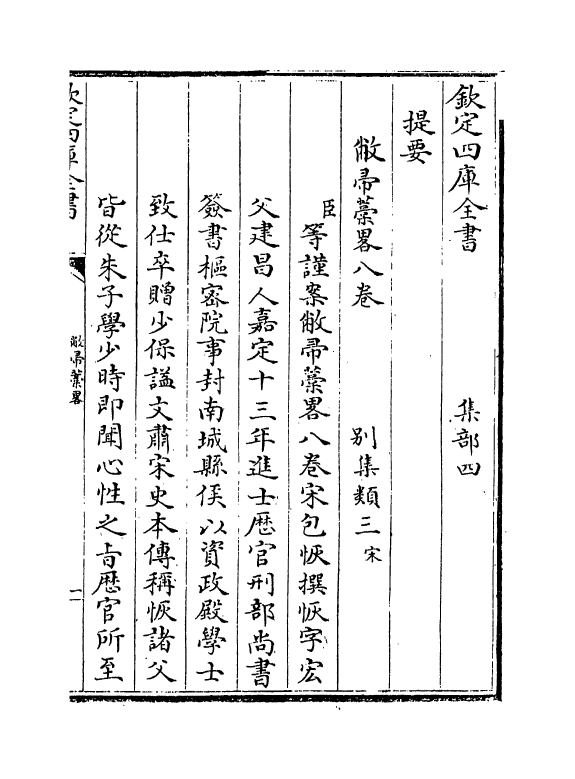 欽定四庫全書　集部四
提要
敝帚藁畧八卷　別集類三宋
臣等謹案敝帚藁畧八卷宋包恢撰恢字宏
父建昌人嘉定十三年進士歴官刑部尚書
簽書樞密院事封南城縣侯以資政殿學士
致仕卒贈少保諡文肅宋史本傳稱恢諸父
皆從朱子學少時即聞心性之旨歴官所至
欽定四庫全書
敝帚藁畧
一